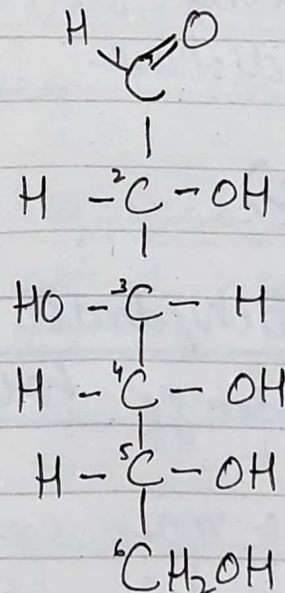 H O
C
H - ²C - OH
HO - ³C - H
H - ⁴C - OH
H - ⁵C - OH
⁶CH₂OH